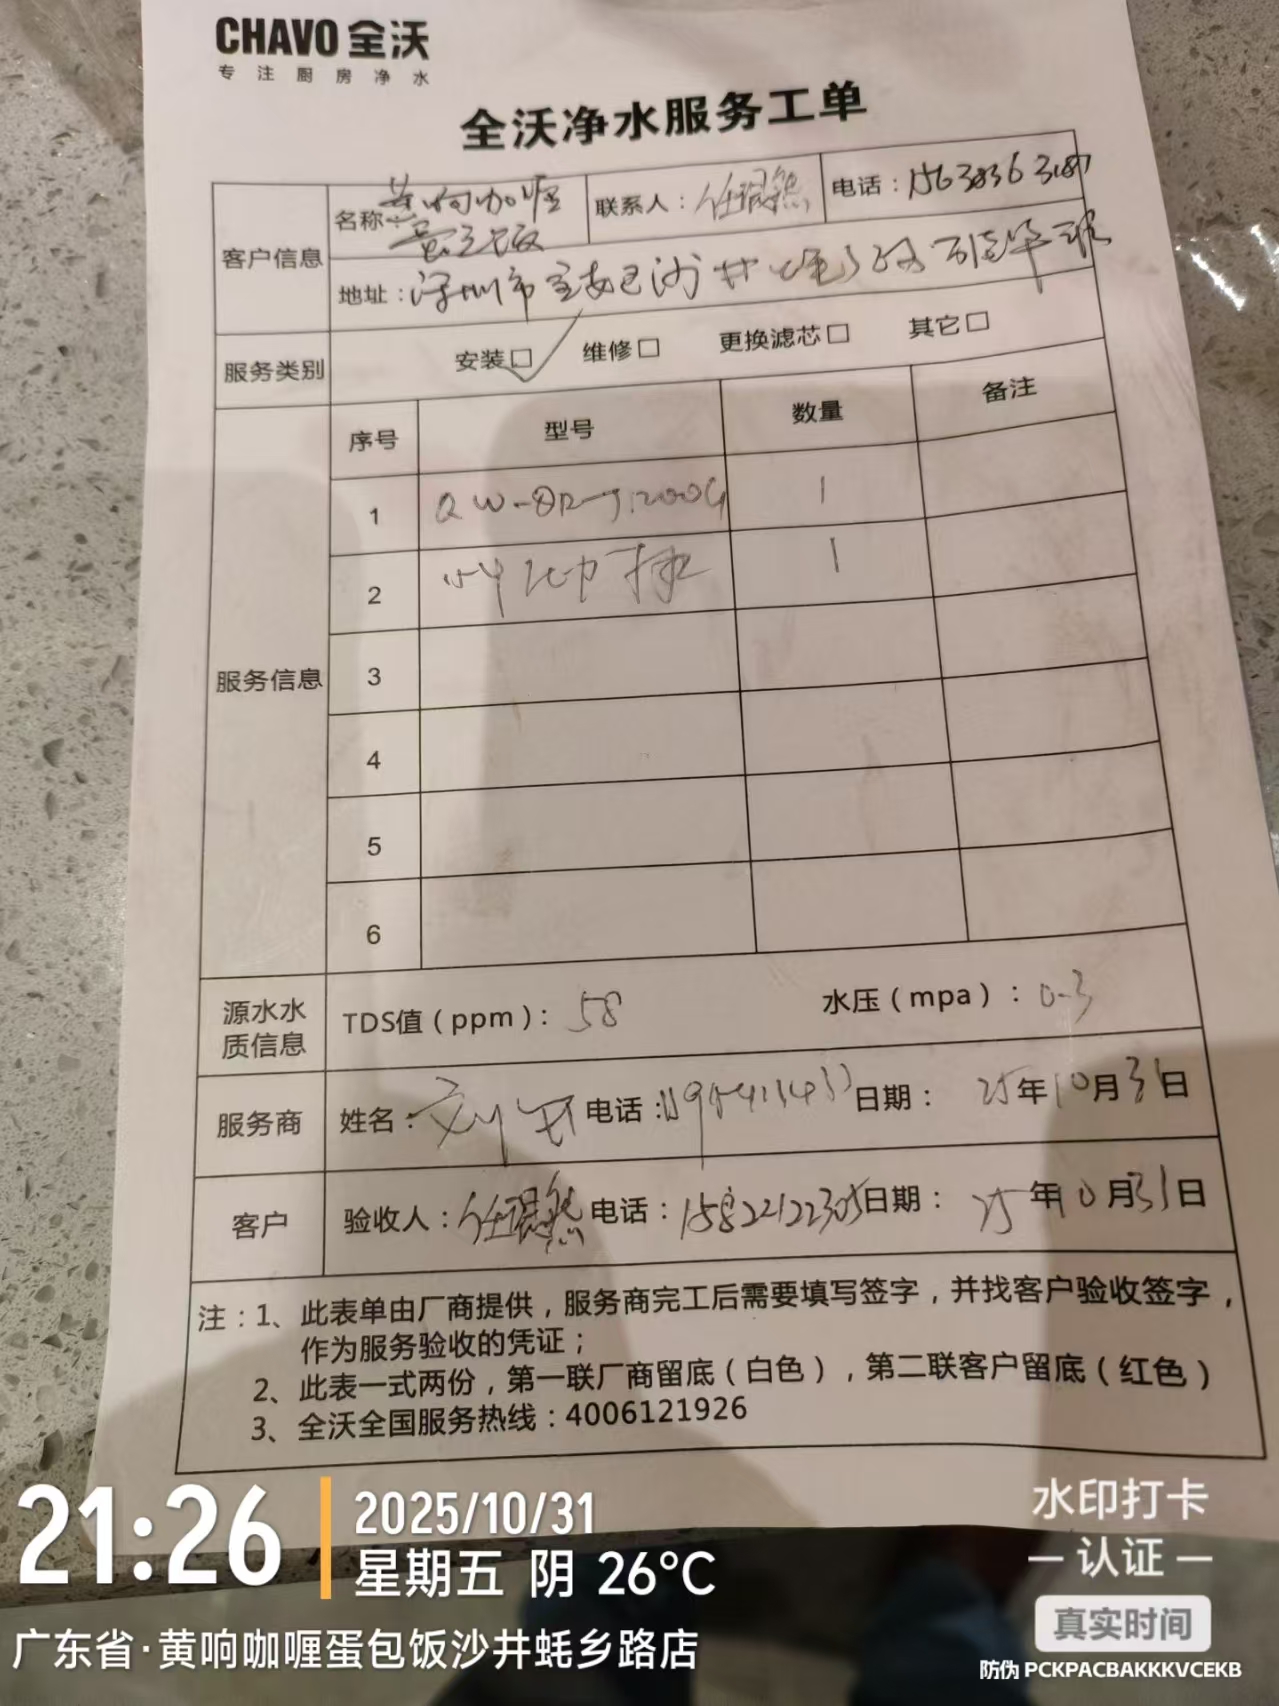 CHAVO 全沃
专注厨房净水
全沃净水服务工单
客户信息
名称：黄响咖喱
联系人：任
电话：
地址：深圳市宝安区沙井
服务类别
安装□✓ 维修□ 更换滤芯□ 其它□
服务信息
序号 型号 数量 备注
1 1
2 1
3
4
5
6
源水水质信息
TDS值（ppm）：58 水压（mpa）：0.3
服务商
姓名： 电话： 日期：25年10月31日
客户
验收人：任 电话：15822122305 日期：25年10月31日
注：1、此表单由厂商提供，服务商完工后需要填写签字，并找客户验收签字，
作为服务验收的凭证；
2、此表一式两份，第一联厂商留底（白色），第二联客户留底（红色）
3、全沃全国服务热线：4006121926
21:26
2025/10/31
星期五 阴 26°C
广东省·黄响咖喱蛋包饭沙井蚝乡路店
水印打卡
认证
真实时间
防伪 PCKPACBAKKKVCEKB